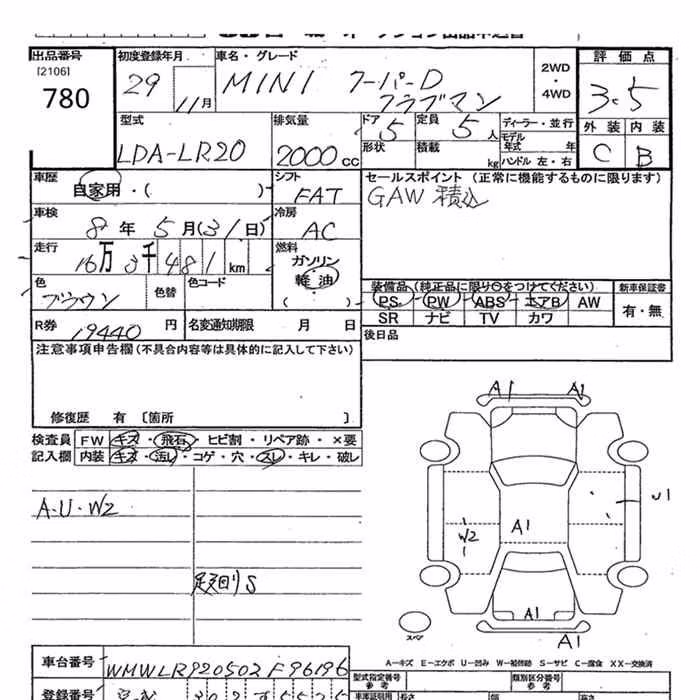 出品番号 初度登録年月 車名・グレード 評価点
[2106] 780 29 11月 MINI クーパーD クラブマン 2WD・4WD 3.5
型式 排気量 ドア 定員 ディーラー・並行 外装 内装
LDA-LR20 2000cc 5 5人 モデル年式 年 C B
形状 積載 kg ハンドル 左・右
車歴 自家用・( ) シフト FAT セールスポイント (正常に機能するものに限ります)
GAW 積込
車検 8年5月(31日) 冷房 AC
走行 16万3千481km 燃料 ガソリン 軽油 ( )
色 ブラウン 色替 色コード
装備品 (純正品に限り○をつけてください) 新車保証書
PS PW ABS エアB AW 有・無
SR ナビ TV カワ
R券 19440円 名変通知期限 月 日 後日品
注意事項申告欄 (不具合内容等は具体的に記入して下さい)
修復歴 有 〔箇所 〕
検査員 FW キズ・飛石・ヒビ割・リペア跡・×要
記入欄 内装 キズ・汚レ・コゲ・穴・スレ・キレ・破レ
A1 A1
A・U・W2
U1
W2 A1
足廻りS
A1
スペア A1
A-キズ E-エクボ U-凹み W-補修跡 S-サビ C-腐食 XX-交換済
車台番号 WMWLR920502F96196
型式指定番号 参考 類別区分番号 参考
登録番号